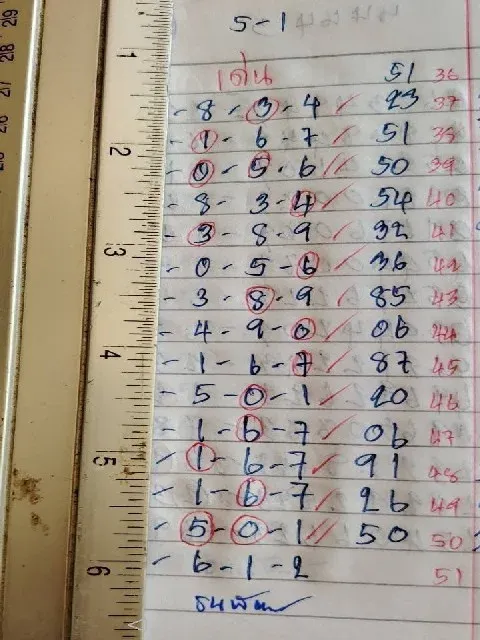 5-1
เด่น 51 36
- 8 - 3 - 4 ✓ 23 37
- 1 - 6 - 7 ✓ 51 38
- 0 - 5 - 6 ✓✓ 50 39
- 8 - 3 - 4 ✓ 54 40
- 3 - 8 - 9 ✓ 32 41
- 0 - 5 - 6 ✓ 36 42
- 3 - 8 - 9 ✓ 85 43
- 4 - 9 - 0 ✓ 06 44
- 1 - 6 - 7 ✓ 87 45
- 5 - 0 - 1 ✓ 20 46
- 1 - 6 - 7 ✓ 06 47
- 1 - 6 - 7 ✓ 91 48
- 1 - 6 - 7 ✓ 26 49
- 5 - 0 - 1 ✓✓ 50 50
- 6 - 1 - 2 51
1
2
3
4
5
6
219
218
217